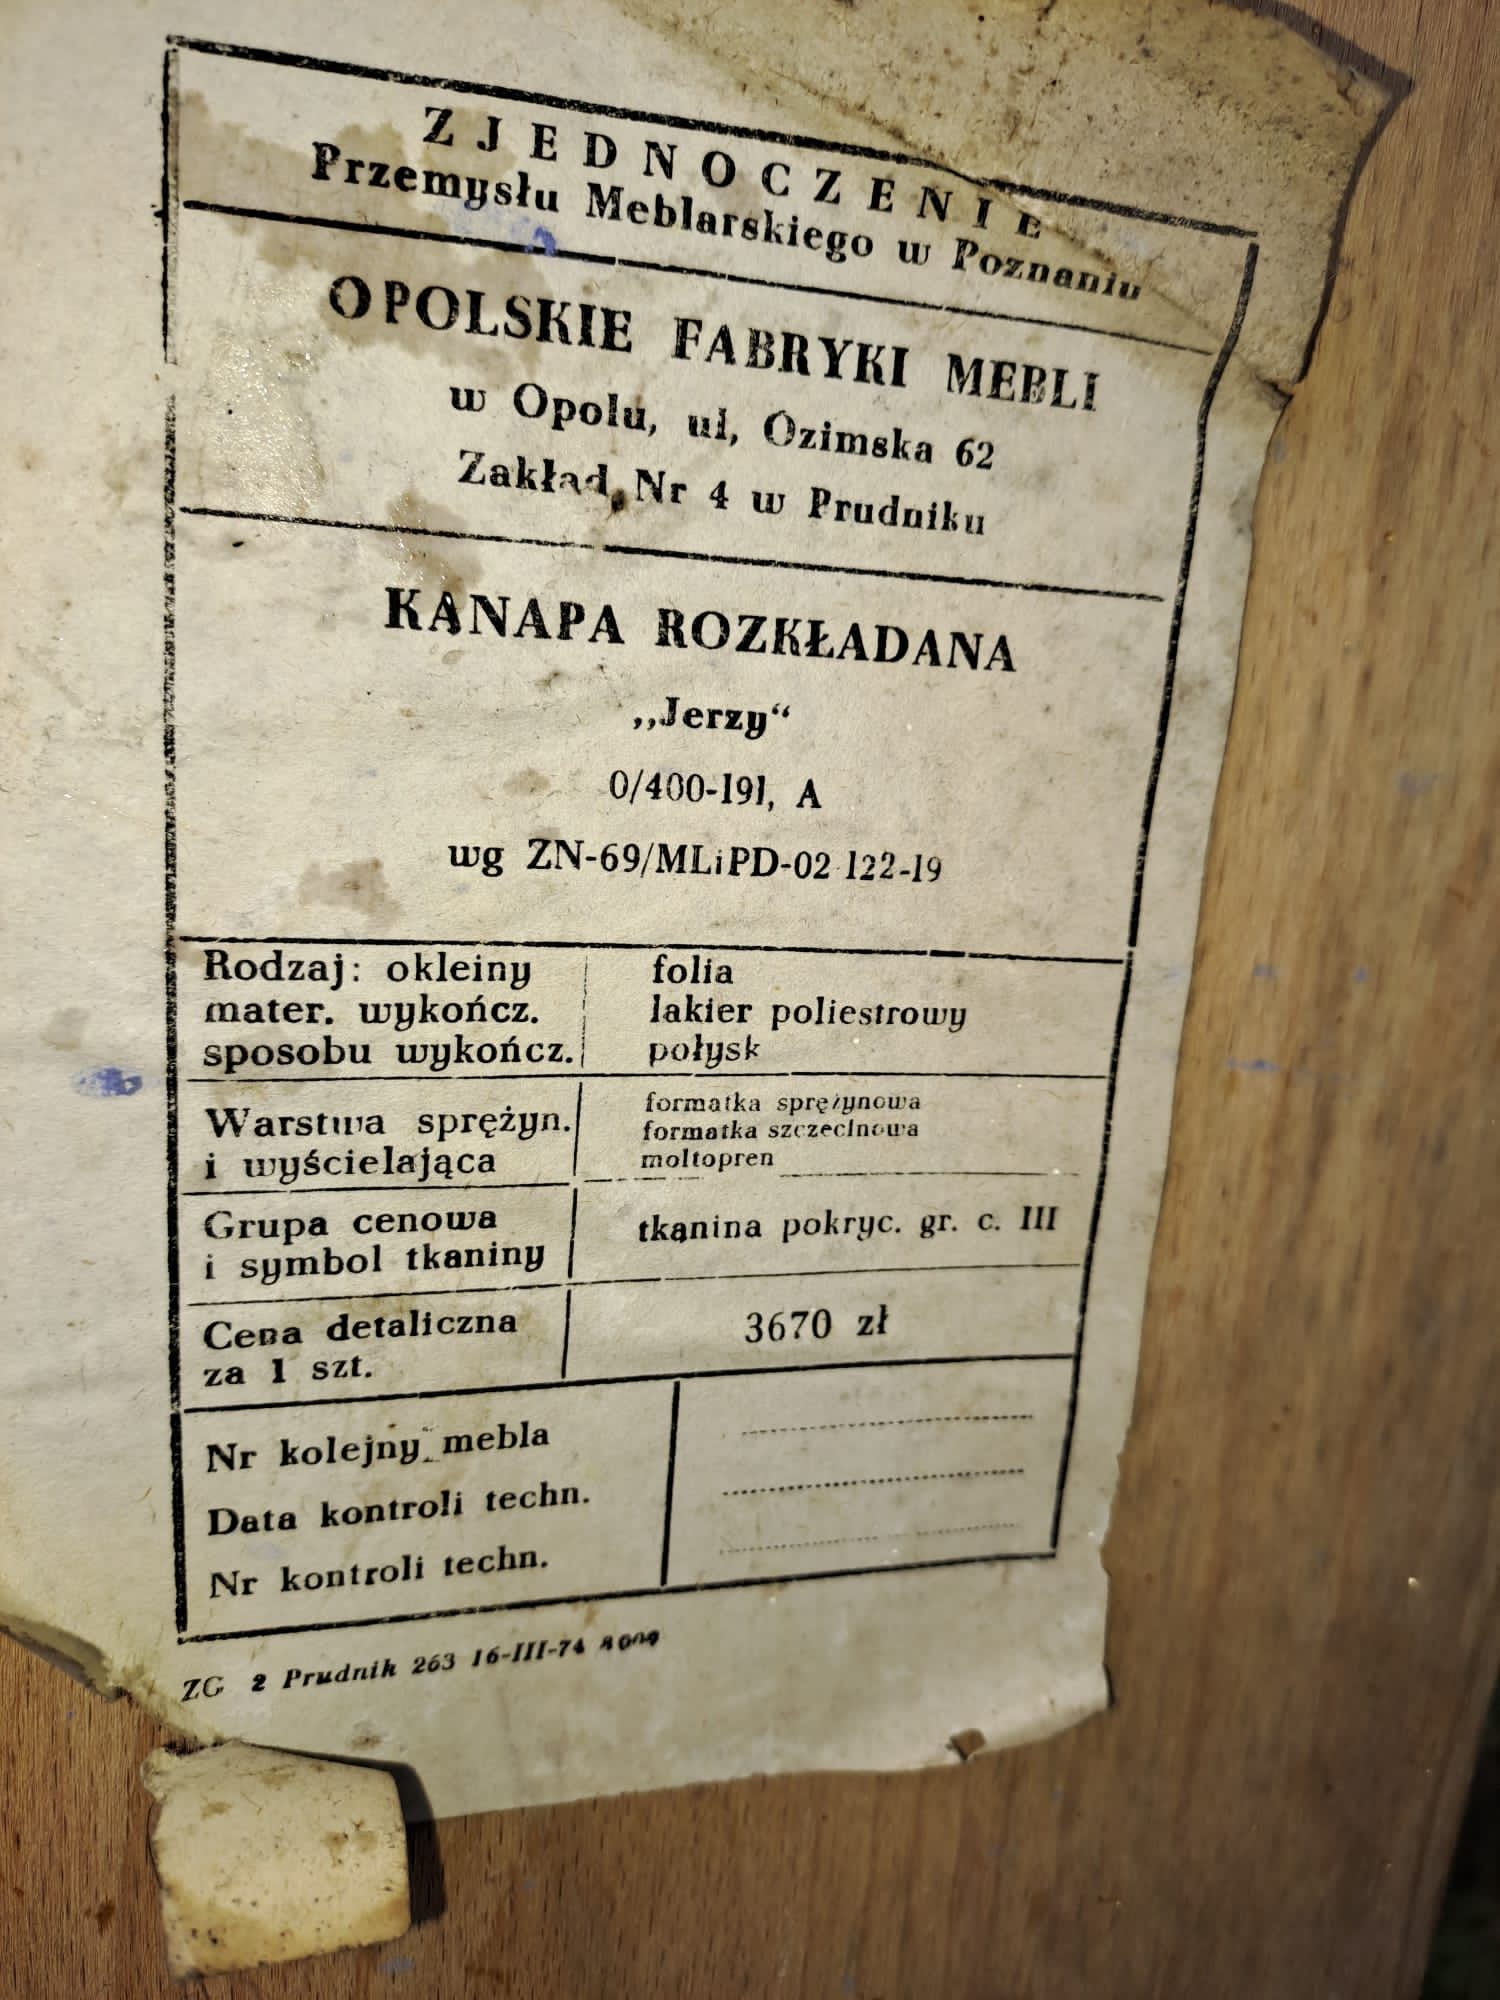 ZJEDNOCZENIE
Przemysłu Meblarskiego w Poznaniu
OPOLSKIE FABRYKI MEBLI
w Opolu, ul, Ozimska 62
Zakład Nr 4 w Prudniku
KANAPA ROZKŁADANA
„Jerzy“
0/400-191, A
wg ZN-69/MLiPD-02 122-19
Rodzaj: okleiny folia
mater. wykończ. lakier poliestrowy
sposobu wykończ. połysk
Warstwa sprężyn. i wyścielająca
formatka sprężynowa
formatka szczecinowa
moltopren
Grupa cenowa
i symbol tkaniny
tkanina pokryc. gr. c. III
Cena detaliczna
za 1 szt.
3670 zł
Nr kolejny mebla
Data kontroli techn.
Nr kontroli techn.
ZG 2 Prudnik 263 16-III-74